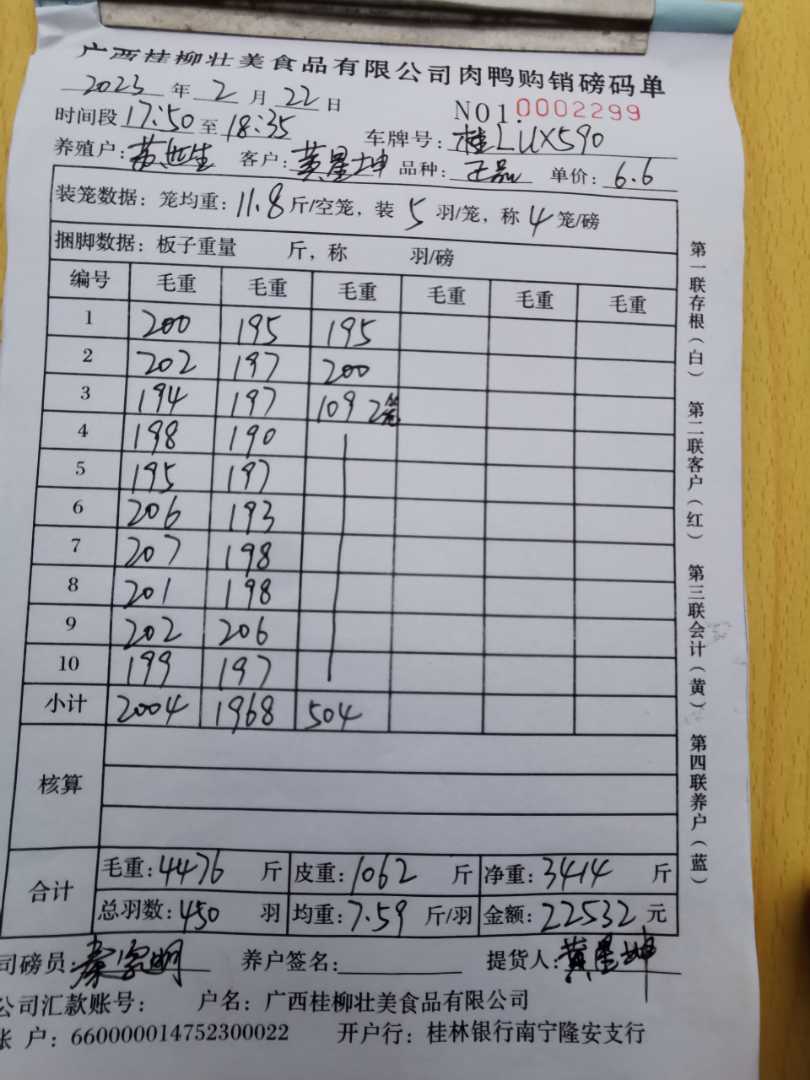 广西桂柳壮美食品有限公司肉鸭购销磅码单
2023 年 2 月 22 日
NO1. 0002299
时间段 17:50 至 18:35 车牌号: 桂LUX590
养殖户: 客户: 黄星坤 品种: 正品 单价: 6.6
装笼数据: 笼均重: 11.8 斤/空笼, 装 5 羽/笼, 称 4 笼/磅
捆脚数据: 板子重量 斤, 称 羽/磅
编号 毛重 毛重 毛重 毛重 毛重 毛重
1 200 195 195
2 202 197 200
3 194 197 109 2笼
4 198 190
5 195 197
6 206 193
7 207 198
8 201 198
9 202 206
10 199 197
小计 2004 1968 504
核算
合计 毛重: 4476 斤 皮重: 1062 斤 净重: 3414 斤
总羽数: 450 羽 均重: 7.59 斤/羽 金额: 22532 元
司磅员: 秦家明 养户签名: 提货人: 黄星坤
公司汇款账号: 户名: 广西桂柳壮美食品有限公司
账 户: 660000014752300022 开户行: 桂林银行南宁隆安支行
第一联存根(白) 第二联客户(红) 第三联会计(黄) 第四联养户(蓝)